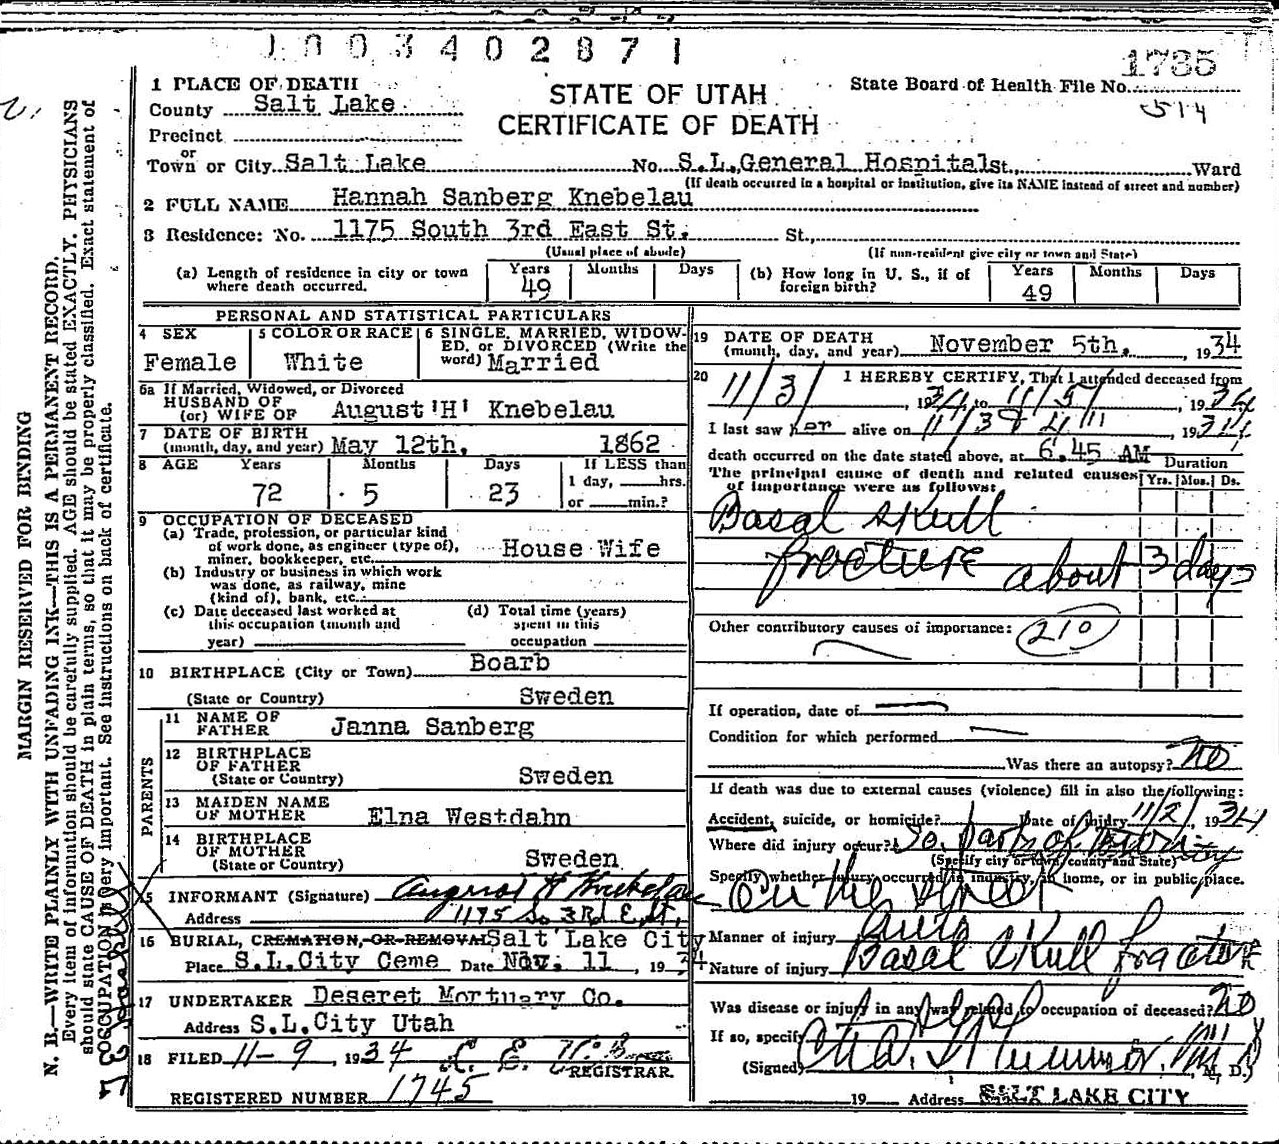 1003402871
1735
1 PLACE OF DEATH
STATE OF UTAH
State Board of Health File No.
514
County Salt Lake
CERTIFICATE OF DEATH
Precinct
or
Town or City Salt Lake No. S.L.General Hospital St., Ward
(If death occurred in a hospital or institution, give its NAME instead of street and number)
2 FULL NAME Hannah Sanberg Knebelau
3 Residence: No. 1175 South 3rd East St. St.,
(Usual place of abode) (If non-resident give city or town and State)
(a) Length of residence in city or town where death occurred. Years 49 Months Days
(b) How long in U. S., if of foreign birth? Years 49 Months Days
PERSONAL AND STATISTICAL PARTICULARS
4 SEX Female
5 COLOR OR RACE White
6 SINGLE, MARRIED, WIDOWED, or DIVORCED (Write the word) Married
6a If Married, Widowed, or Divorced
HUSBAND OF
(or) WIFE OF August 'H' Knebelau
7 DATE OF BIRTH
(month, day, and year) May 12th, 1862
8 AGE Years 72 Months 5 Days 23
If LESS than 1 day, hrs. or min.?
9 OCCUPATION OF DECEASED
(a) Trade, profession, or particular kind of work done, as engineer (type of), miner, bookkeeper, etc. House Wife
(b) Industry or business in which work was done, as railway, mine (kind of), bank, etc.
(c) Date deceased last worked at this occupation (month and year)
(d) Total time (years) spent in this occupation
10 BIRTHPLACE (City or Town) Boarb
(State or Country) Sweden
PARENTS
11 NAME OF FATHER Janna Sanberg
12 BIRTHPLACE OF FATHER
(State or Country) Sweden
13 MAIDEN NAME OF MOTHER Elna Westdahn
14 BIRTHPLACE OF MOTHER
(State or Country) Sweden
15 INFORMANT (Signature) August H Knebelau
Address 1175 So 3Rd E. St.
16 BURIAL, CREMATION, OR REMOVAL Salt Lake City
Place S.L.City Ceme Date Nov. 11, 1934
17 UNDERTAKER Deseret Mortuary Co.
Address S.L.City Utah
18 FILED 11-9, 1934
REGISTRAR
REGISTERED NUMBER 1745
19 DATE OF DEATH
(month, day, and year) November 5th, , 1934
20 I HEREBY CERTIFY, That I attended deceased from
11/3/, 1934, to 11/5/, 1934
I last saw her alive on 1934
death occurred on the date stated above, at 6.45 AM
The principal cause of death and related causes of importance were as follows:
Duration
Yrs. Mos. Ds.
Basal skull
fracture about 3 days
Other contributory causes of importance: 210
If operation, date of
Condition for which performed
Was there an autopsy? no
If death was due to external causes (violence) fill in also the following:
Accident, suicide, or homicide? Date of injury 11/2/, 1934
Where did injury occur? So. part of
(Specify city or town, county and State)
Specify whether injury occurred in industry, in home, or in public place.
On the street
Manner of injury Auto
Nature of injury Basal skull fracture
Was disease or injury in any way related to occupation of deceased? no
If so, specify
(Signed) M. D.
19 Address SALT LAKE CITY
MARGIN RESERVED FOR BINDING
N. B.—WRITE PLAINLY WITH UNFADING INK—THIS IS A PERMANENT RECORD.
Every item of information should be carefully supplied. AGE should be stated EXACTLY. PHYSICIANS
should state CAUSE OF DEATH in plain terms, so that it may be properly classified. Exact statement of
OCCUPATION is very important. See instructions on back of certificate.